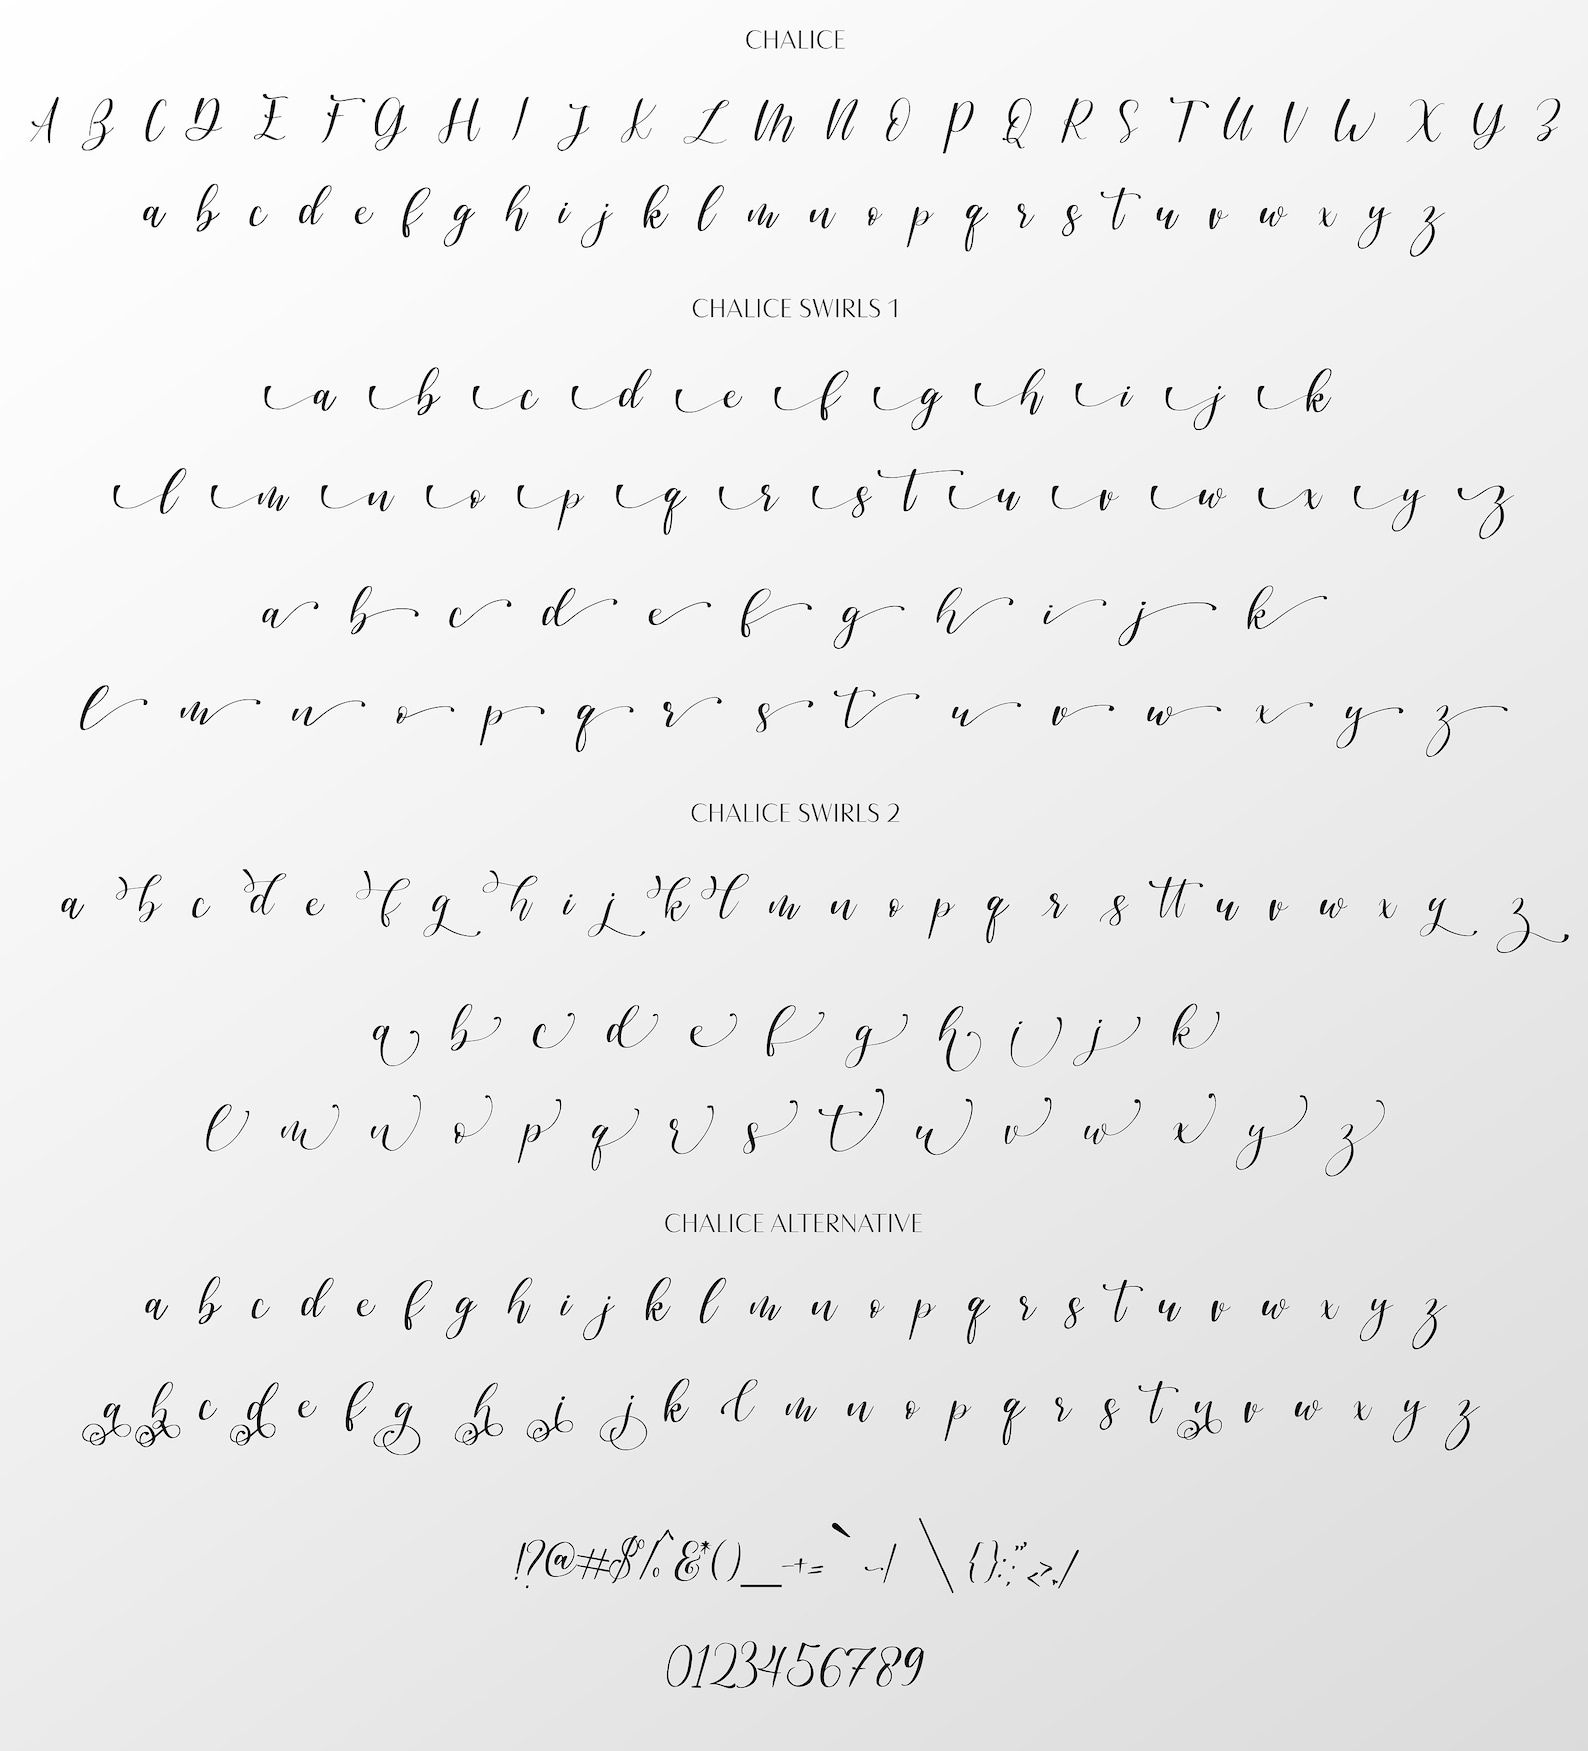 CHALICE
A B C D E F G H I J K L M N O P Q R S T U V W X Y Z
a b c d e f g h i j k l m n o p q r s t u v w x y z
CHALICE SWIRLS 1
a b c d e f g h i j k
l m n o p q r s t u v w x y z
a b c d e f g h i j k
l m n o p q r s t u v w x y z
CHALICE SWIRLS 2
a b c d e f g h i j k l m n o p q r s tt u v w x y z
a b c d e f g h i j k
l m n o p q r s t u v w x y z
CHALICE ALTERNATIVE
a b c d e f g h i j k l m n o p q r s t u v w x y z
a b c d e f g h i j k l m n o p q r s t u v w x y z
!?@#$%^&*()_-+=` ~-/ \ {}:;"<>./
0123456789